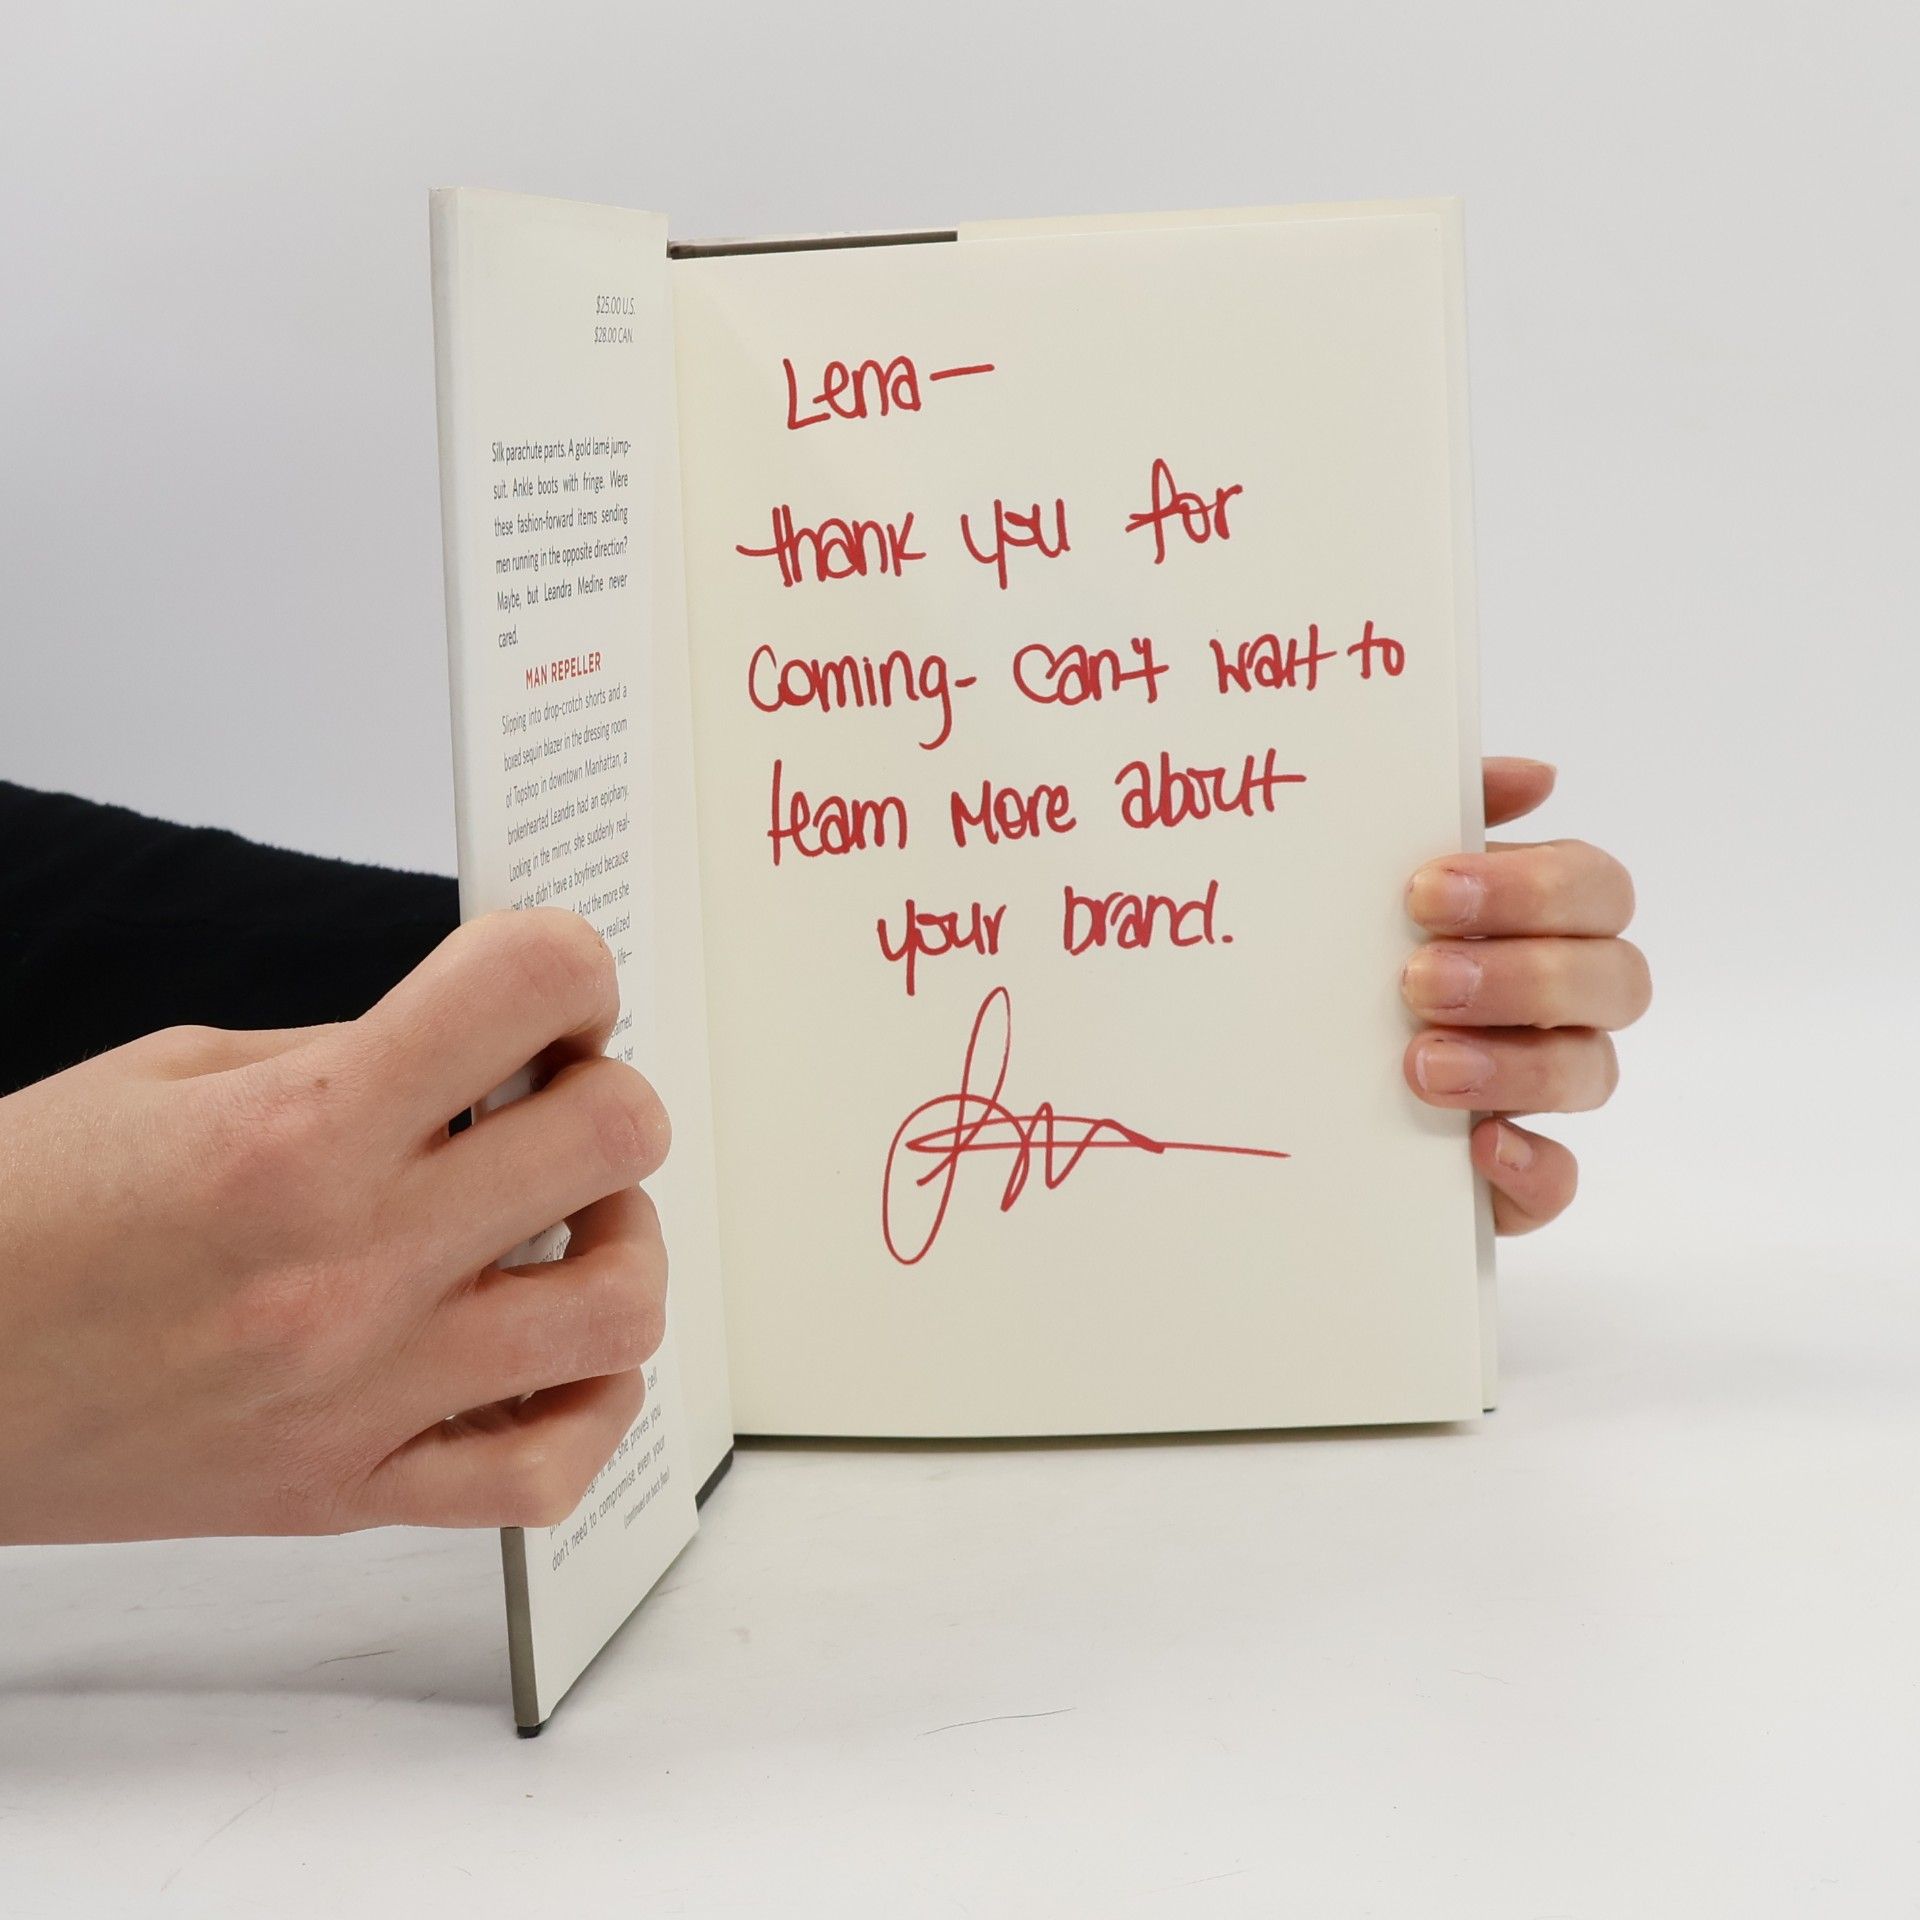 $25.00 U.S.
$28.00 CAN.
Silk parachute pants. A gold lamé jump-
suit. Ankle boots with fringe. Were
these fashion-forward items sending
men running in the opposite direction?
Maybe, but Leandra Medine never
cared.
MAN REPELLER
Slipping into drop-crotch shorts and a
boxed sequin blazer in the dressing room
of Topshop in downtown Manhattan, a
brokenhearted Leandra had an epiphany.
Looking in the mirror, she suddenly real-
ized she didn't have a boyfriend because
And the more she
realized
life—
her
cell
it all, she proves you
don't need to compromise even your
(continued on back flap)
Lena—
thank you for
Coming- can't wait to
learn more about
your brand.